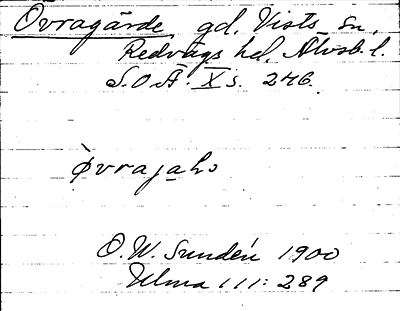 Övragärde, gd, Vists sn,
Redvägs hd, Älvsb. l.
S.O.Ä. X s. 246.
O. W. Sundén 1900
Ulma 111: 289